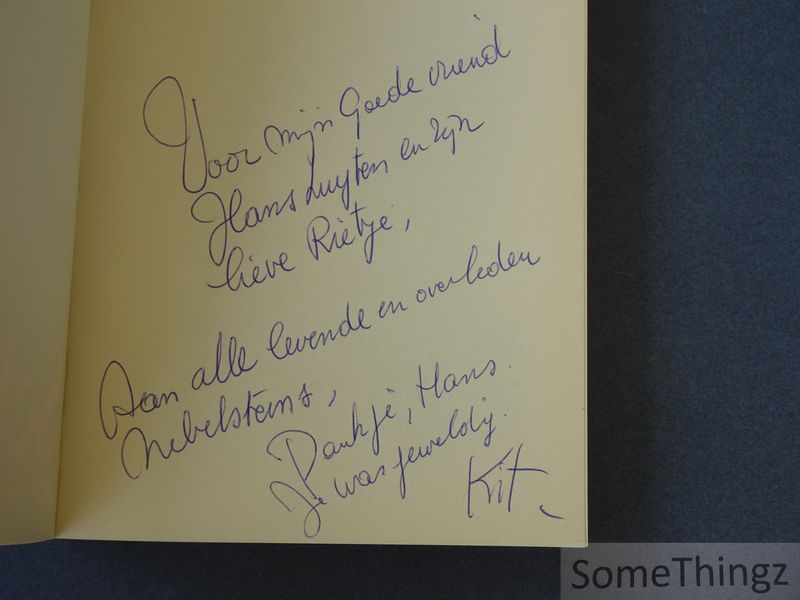 Voor mijn Goede vriend
Hans Luyten en zijn
lieve Rietje,
Aan alle levende en overleden
Nebelsteins,
Dankje, Hans.
Je was geweldig.
Kit
SomeThingz